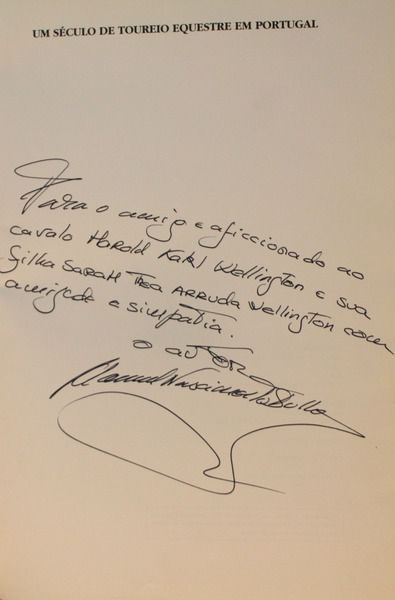 UM SÉCULO DE TOUREIO EQUESTRE EM PORTUGAL
Para o amigo e aficcionado ao
cavalo Harold Karl Wellington e sua
filha Sarah Thea Arruda Wellington com
amizade e simpatia.
O autor
Manuel Nascimento